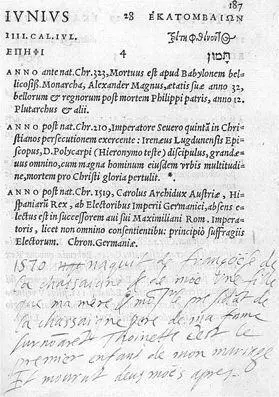 187
IVNIVS 28 ΕΚΑΤΟΜΒΑΙΩΝ
IIII. CAL. IVL.
ΕΠΗΦΙ 4 תמוז
ANNO ante nat. Chr. 323, Mortuus est apud Babylonem bel-
licosiß. Monarcha, Alexander Magnus, ætatis suæ anno 32,
bellorum & regnorum post mortem Philippi patris, anno 12.
Plutarchus & alii.
ANNO post nat. Chr. 210, Imperatore Seuero quintā in Chri-
stianos persecutionem exercente: Irenæus Lugdunensis Epi-
scopus, D. Polycarpi (Hieronymo teste) discipulus, grandæ-
uus omnino, cum magna hominum eiusdem vrbis multitudi-
ne, mortem pro Christi gloria pertulit.*.
ANNO post nat. Chr. 1519, Carolus Archidux Austriæ, Hi-
spaniarū Rex, ab Electoribus Imperii Germanici, absens e-
lectus est in successorem aui sui Maximiliani Rom. Impera-
toris, licet non omnino consentientibus principiò suffragiis
Electorum. Chron. Germaniæ.
1570 naquit de françoise de
la chassaigne & de moi une fille
que ma mere & mōsr le presidāt de
la chassaigne pere de ma fame
surnomarēt Thoinette c'est le
premier enfant de mon mariage
Et mourut deus mois apres